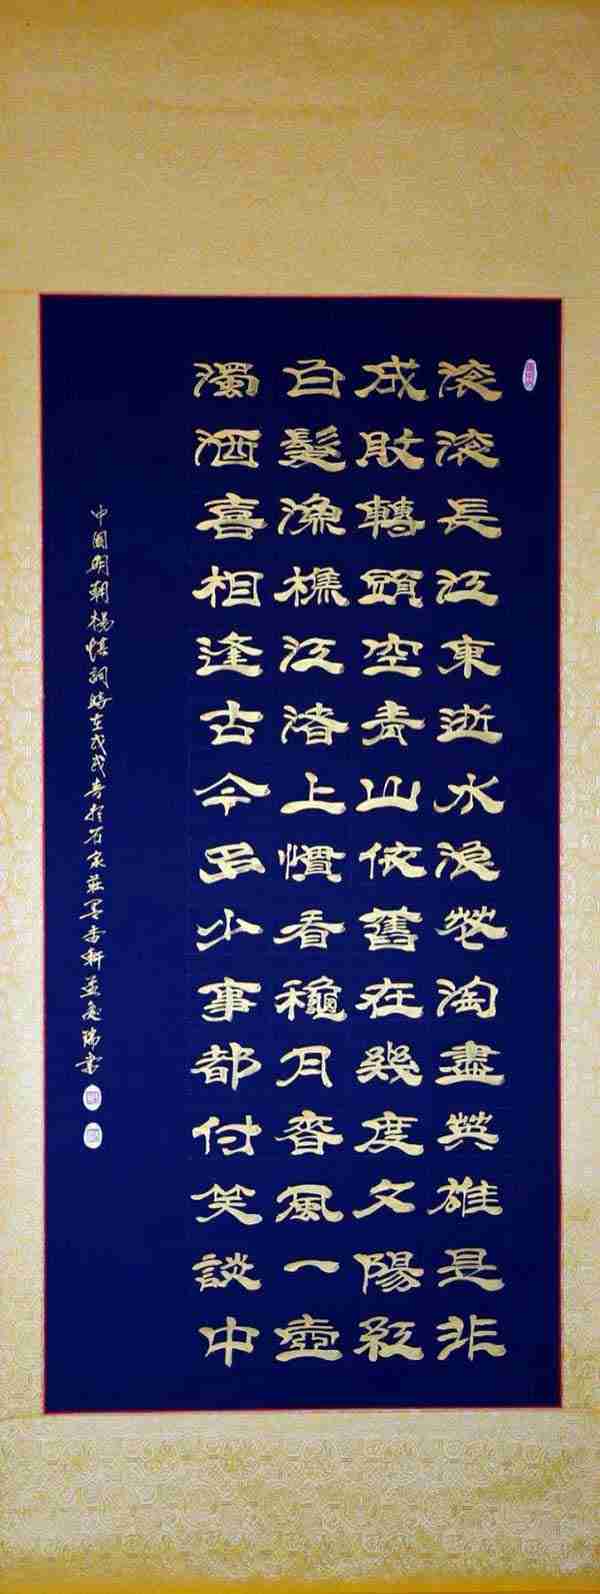 滚滚長江東逝水浪花淘盡英雄是非
成敗轉頭空青山依舊在幾度夕陽紅
白髮漁樵江渚上慣看穐月春風一壺
濁酒喜相逢古今多少事都付笑談中
中國明朝楊慎詞時在戊戌春於石家莊墨香軒瑞書